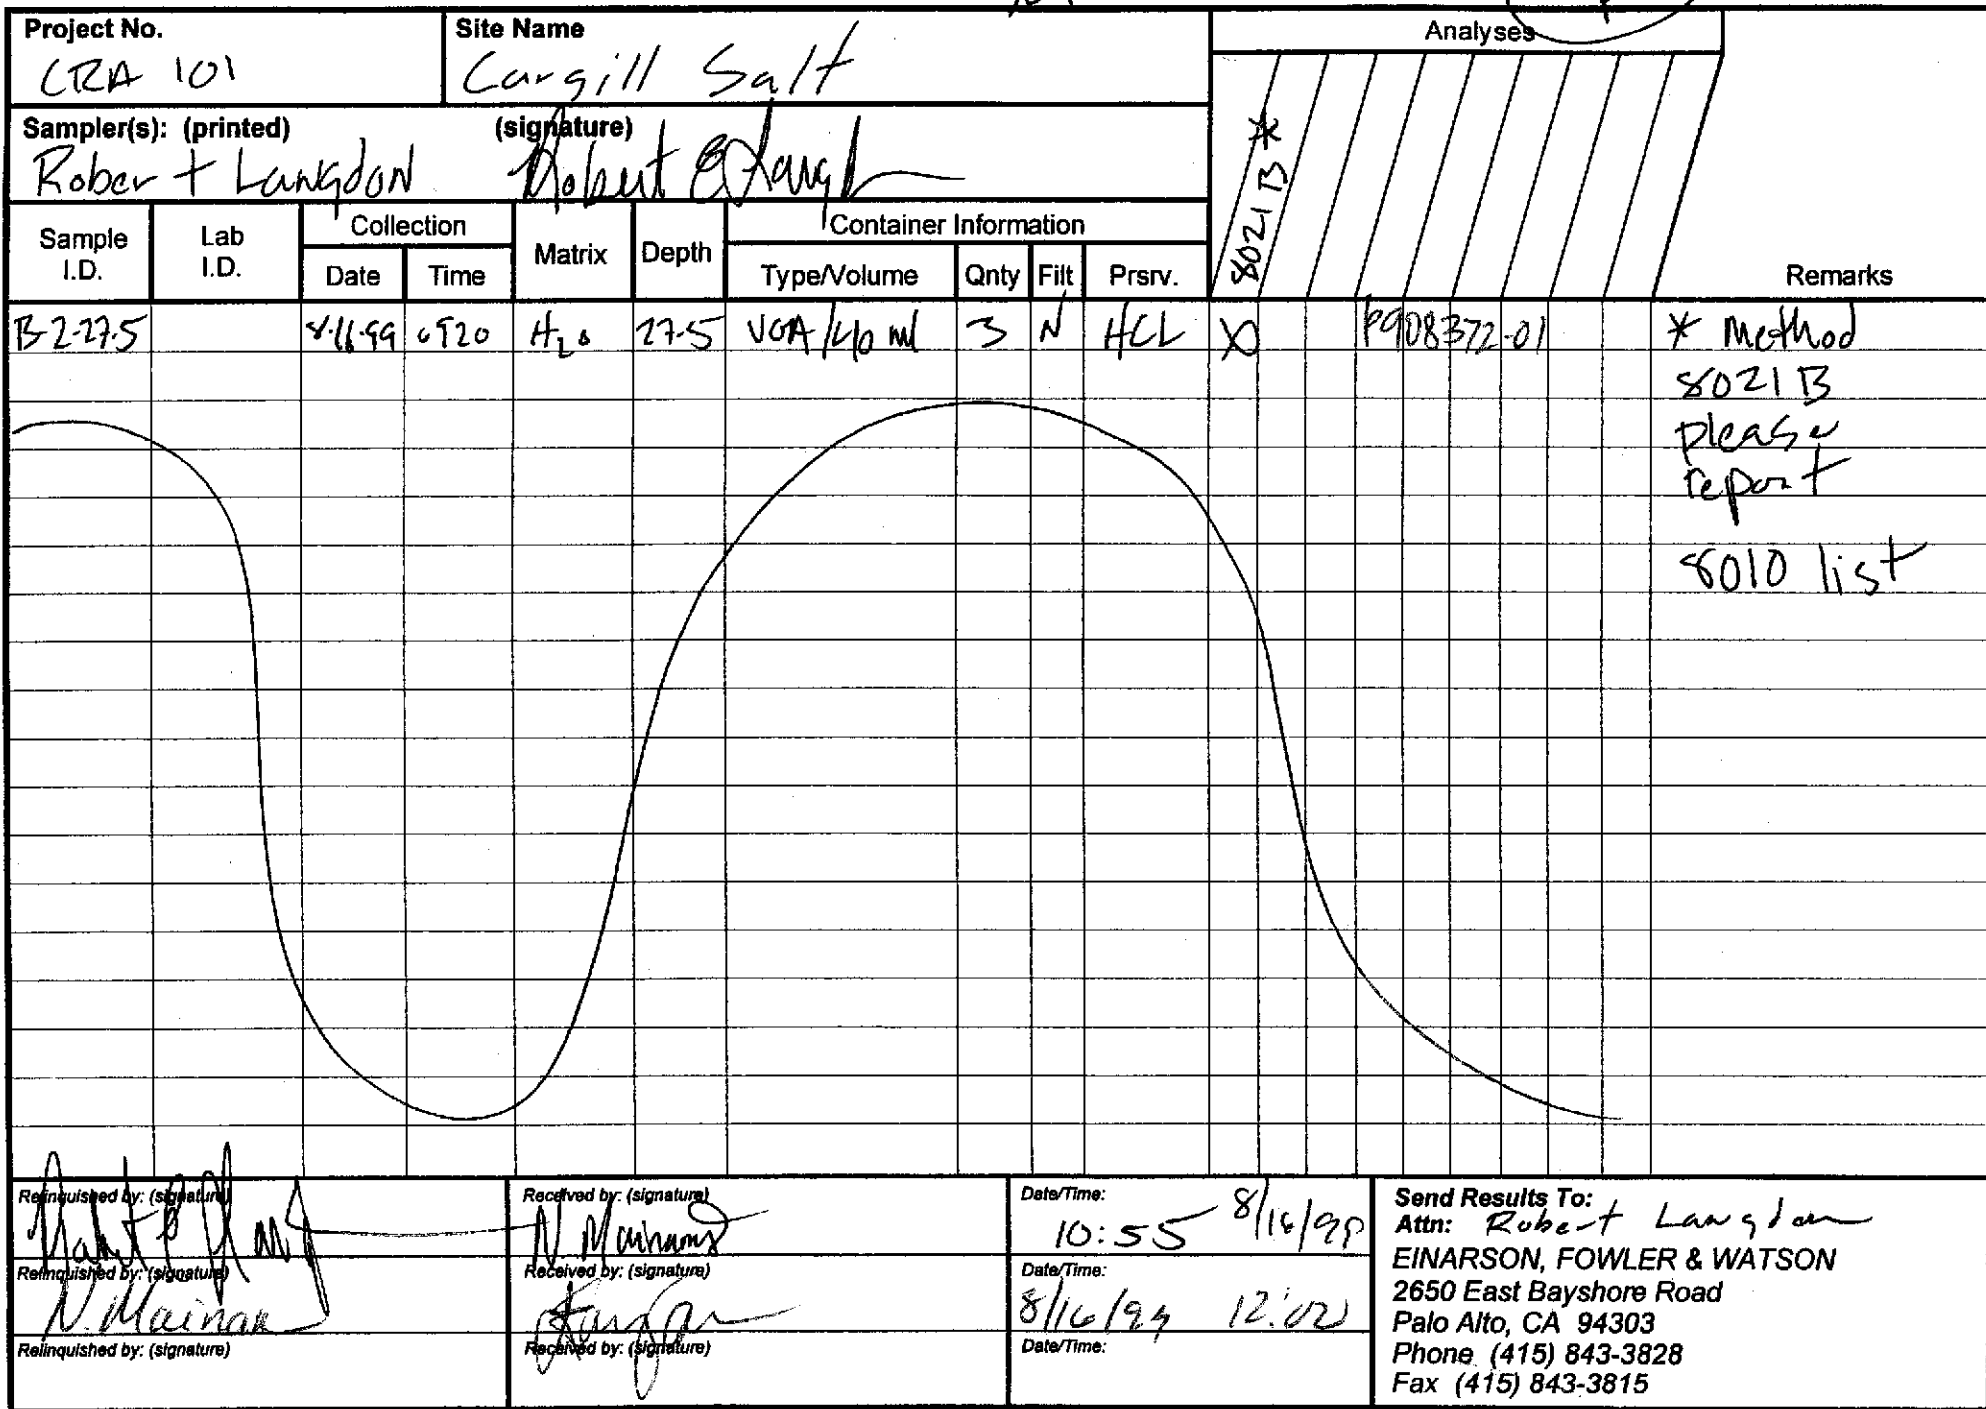 Project No.
CRA 101
Site Name
Cargill Salt
Analyses
Sampler(s): (printed) (signature)
Robert Langdon
8021 B *
Sample I.D.
Lab I.D.
Collection
Date
Time
Matrix
Depth
Container Information
Type/Volume
Qnty
Filt
Prsrv.
Remarks
B-2-27.5 8-16-99 0920 H2O 27.5 VOA/40 ml 3 N HCL X P908372-01 * Method
8021 B
please
report
8010 list
Relinquished by: (signature)
Received by: (signature)
N. Mainans
Date/Time:
10:55 8/16/99
Relinquished by: (signature)
N. Mainan
Received by: (signature)
Date/Time:
8/16/99 12:02
Relinquished by: (signature)
Received by: (signature)
Date/Time:
Send Results To:
Attn: Robert Langdon
EINARSON, FOWLER & WATSON
2650 East Bayshore Road
Palo Alto, CA 94303
Phone (415) 843-3828
Fax (415) 843-3815